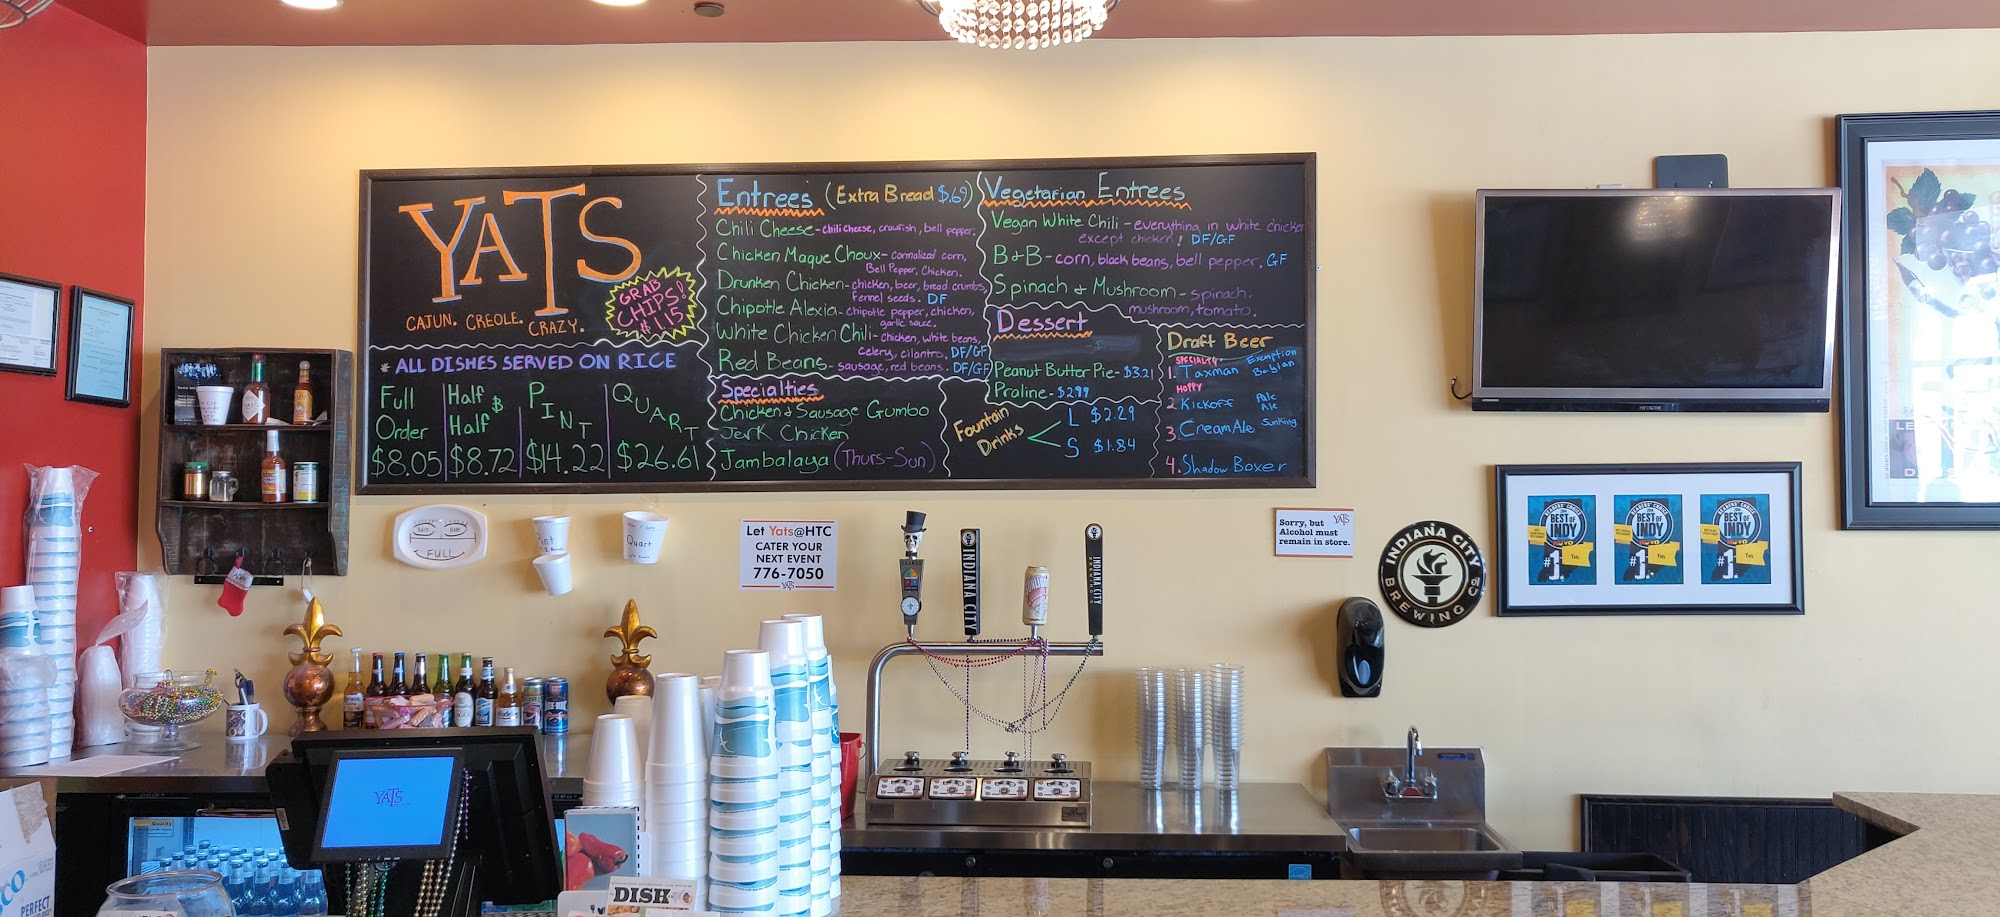 YATS
CAJUN. CREOLE. CRAZY.
GRAB
CHIPS!
$1.15
* ALL DISHES SERVED ON RICE
Full
Order
$8.05
Half $
Half
$8.72
PINT
$14.22
QUART
$26.61
Entrees (Extra Bread $.69)
Chili Cheese - chili cheese, crawfish, bell pepper.
Chicken Maque Choux - carmalized corn,
Bell Pepper, Chicken.
Drunken Chicken - chicken, beer, bread crumbs,
fennel seeds. DF
Chipotle Alexia - chipotle pepper, chicken,
garlic sauce.
White Chicken Chili - chicken, white beans,
celery, cilantro. DF/GF
Red Beans - sausage, red beans. DF/GF
Specialties
Chicken & Sausage Gumbo
Jerk Chicken
Jambalaya (Thurs-Sun)
Vegetarian Entrees
Vegan White Chili - everything in white chicken
except chicken! DF/GF
B&B - corn, black beans, bell pepper. GF
Spinach & Mushroom - spinach,
mushroom, tomato.
Dessert
Peanut Butter Pie - $3.21
Praline - $2.99
Fountain
Drinks
L $2.29
S $1.84
Draft Beer
SPECIALTY
1. Taxman Exemption
HOPPY
2. Kickoff Pale
Ale
3. Cream Ale Sun King
4. Shadow Boxer
HALF HALF
FULL
Pint
Quart
Let Yats@HTC
CATER YOUR
NEXT EVENT
776-7050
YATS
INDIANA CITY
INDIANA CITY
YATS
Sorry, but
Alcohol must
remain in store.
INDIANA CITY
BREWING CO
BEST OF
INDY
#1.
Yats
BEST OF
INDY
#1.
Yats
BEST OF
INDY
#1.
Yats
HITACHI
YATS
DISH
PERFECT